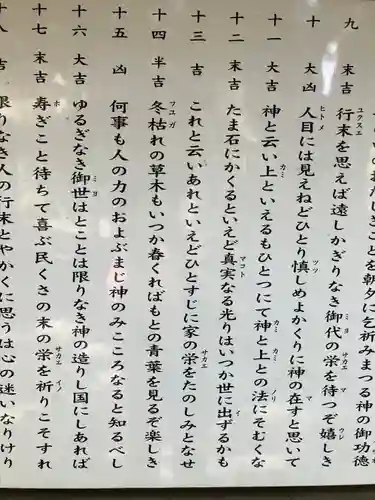 のおたしきことを朝夕に乞祈みまつる神の御功徳
九　末吉　行末を思えば遠しかぎりなき御代の栄を待つぞ嬉しき
ユクスエ　ミヨ　サカエ　マ　ウレ
十　大凶　人目には見えねどひとり慎しめよかくりに神の在すと思いて
ヒトメ　ツツ　マ
十一　大吉　神と云い上といえるもひとつにて神と上との法にそむくな
カミ　カミ　カミ　ノリ
十二　末吉　たま石にかくるといえど真実なる光りはいつか世に出ずるかも
マコト　イ
十三　吉　これと云いあれといえどひとすじに家の栄をたのしみとなせ
サカエ
十四　半吉　冬枯れの草木もいつか春くればもとの青葉を見るぞ楽しき
フユガ
十五　凶　何事も人の力のおよぶまじ神のみこころなると知るべし
十六　大吉　ゆるぎなき御世はとことは限りなき神の造りし国にしあれば
ミヨ
十七　末吉　寿ぎこと待ちて喜ぶ民くさの末の栄を祈りこそすれ
ホ　サカエ　イノ
十八　吉　限りなき人の行末とやかくに思うは心の迷いなりけり